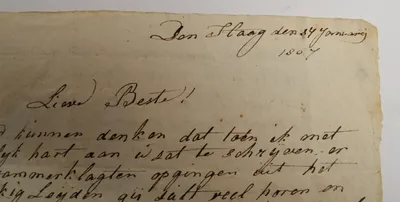 Den Haag den 24 January
1807
Lieve Beste!
kunnen denken dat toen ik met
hart aan u sat te schrijven er
jammerklagten opgingen uit het
Leijden gij sult veel horen en